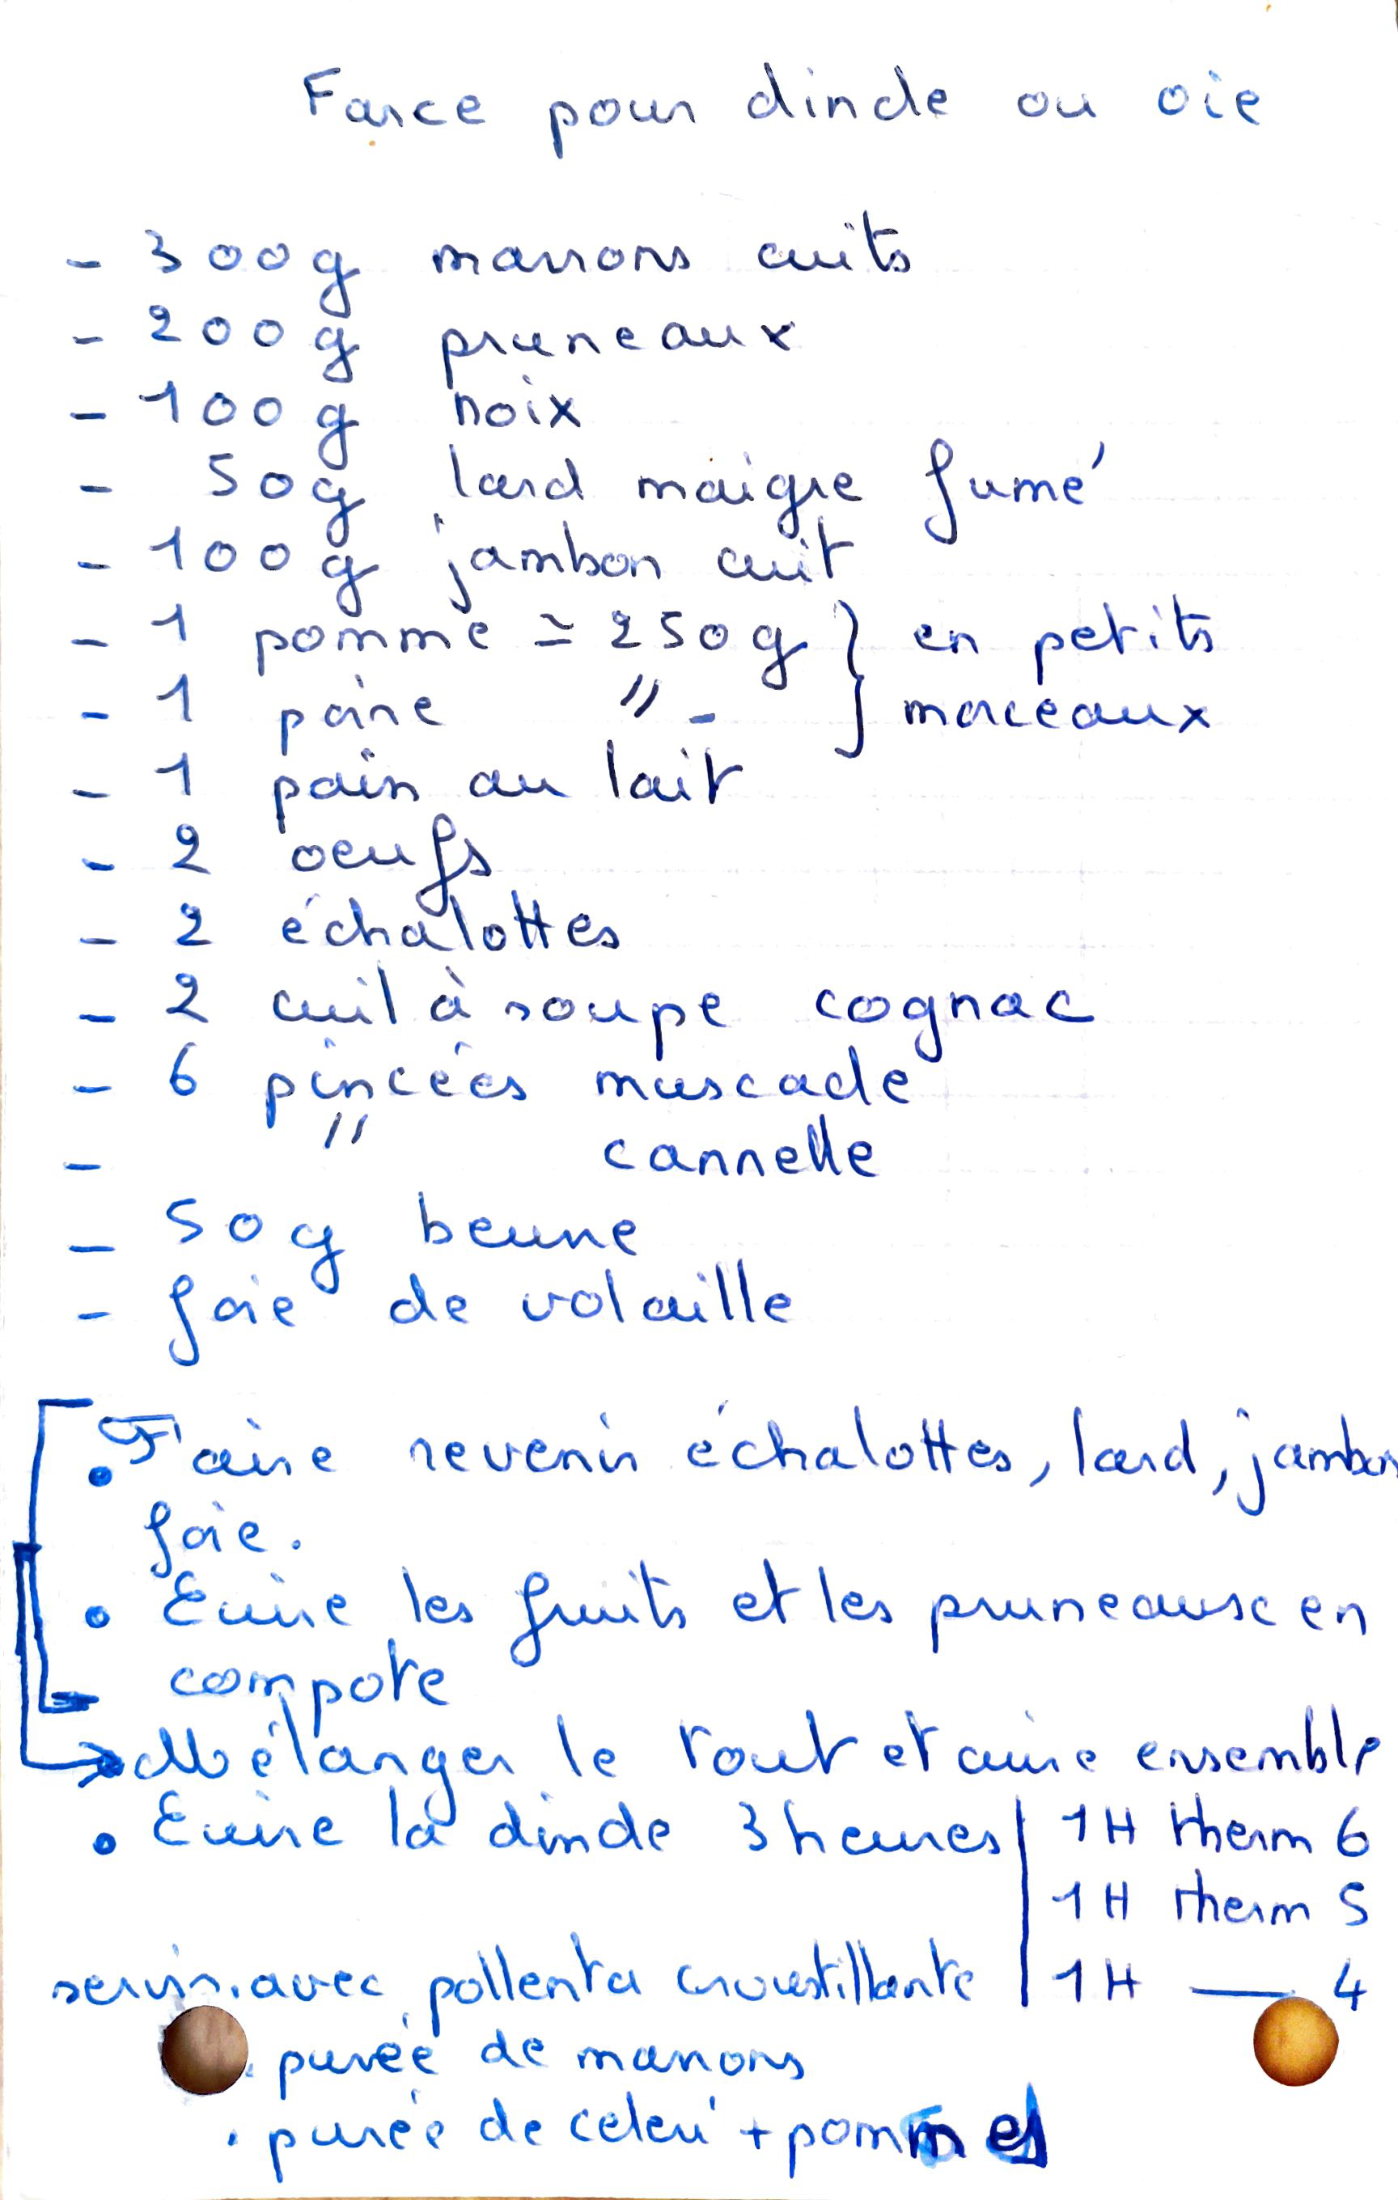 Farce pour dinde ou oie
- 300g marrons cuits
- 200g pruneaux
- 100g noix
- 50g lard maigre fumé
- 100g jambon cuit
- 1 pomme ≃ 250g } en petits
- 1 poire " - } morceaux
- 1 pain au lait
- 2 oeufs
- 2 échalottes
- 2 cuil à soupe cognac
- 6 pincées muscade
- " cannelle
- 50g beurre
- foie de volaille
• Faire revenir échalottes, lard, jambon
foie.
• Cuire les fruits et les pruneaux en
compote
→ Mélanger le tout et cuire ensemble
• Cuire la dinde 3 heures | 1H therm 6
1H therm 5
servir. avec . pollenta croustillante | 1H — 4
. purée de marrons
. purée de celeri + pommes